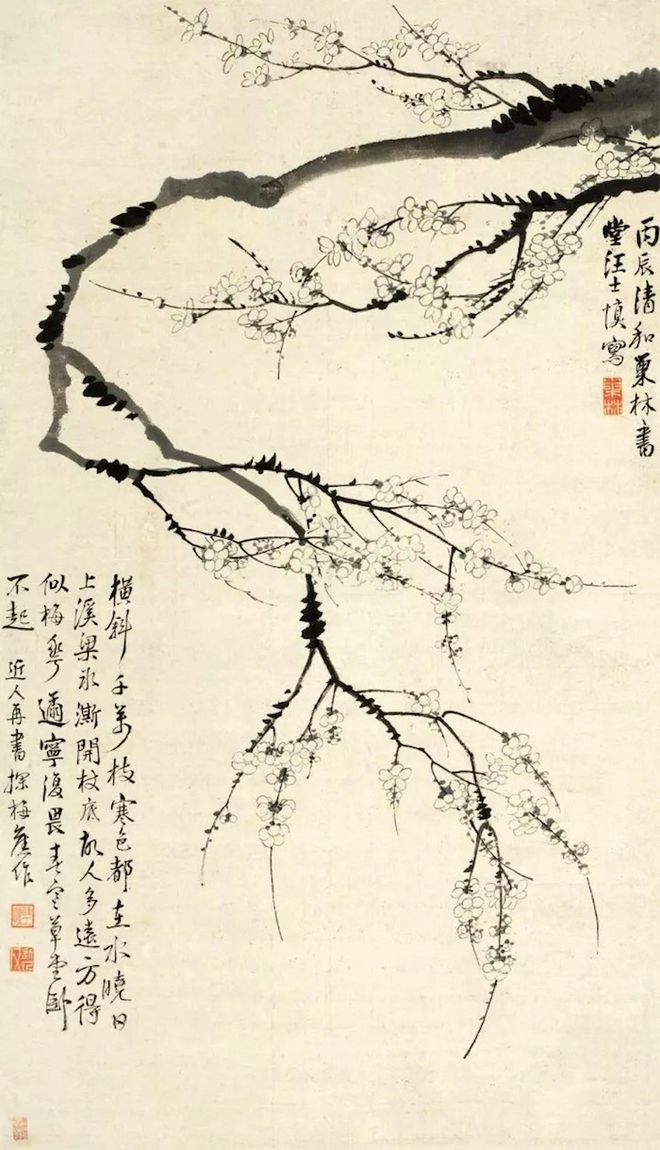 丙辰清和巢林書
堂汪士慎寫
巢林
橫斜千萬枝寒色都在水曉日
上溪梁氷澌開杖底故人多遠方得
似梅華邇寧復畏春寒草堂卧
不起 近人再書探梅舊作